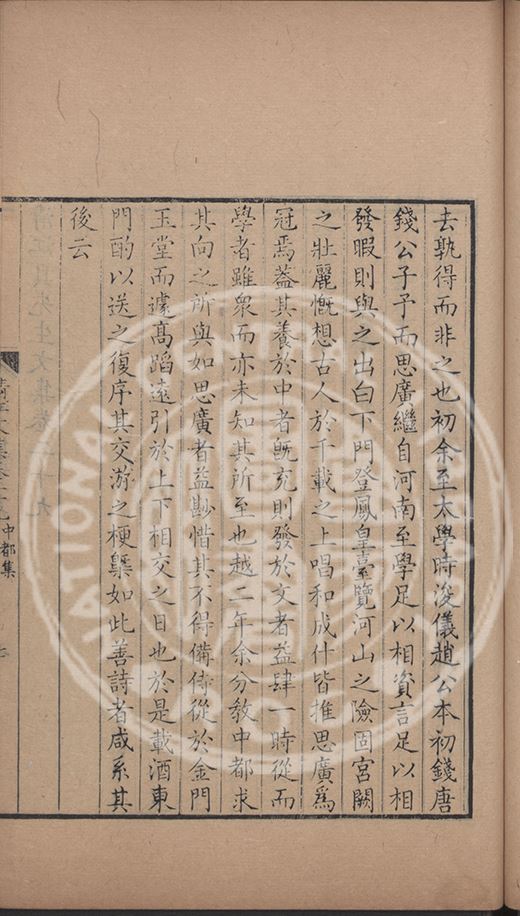 去孰得而非之也初余至太學時浚儀趙公本初錢唐
錢公子予而思廣繼自河南至學足以相資言足以相
發暇則與之出白下門登鳳皇臺覽河山之險固宮闕
之壯麗慨想古人於千載之上唱和成什皆推思廣爲
冠焉蓋其養於中者旣充則發於文者益肆一時從而
學者雖衆而亦未知其所至也越二年余分教中都求
其向之所與如思廣者益尠惜其不得備侍從於金門
玉堂而遽高蹈遠引於上下相交之日也於是載酒東
門酌以送之復序其交游之梗槩如此善詩者咸系其
後云
中都集